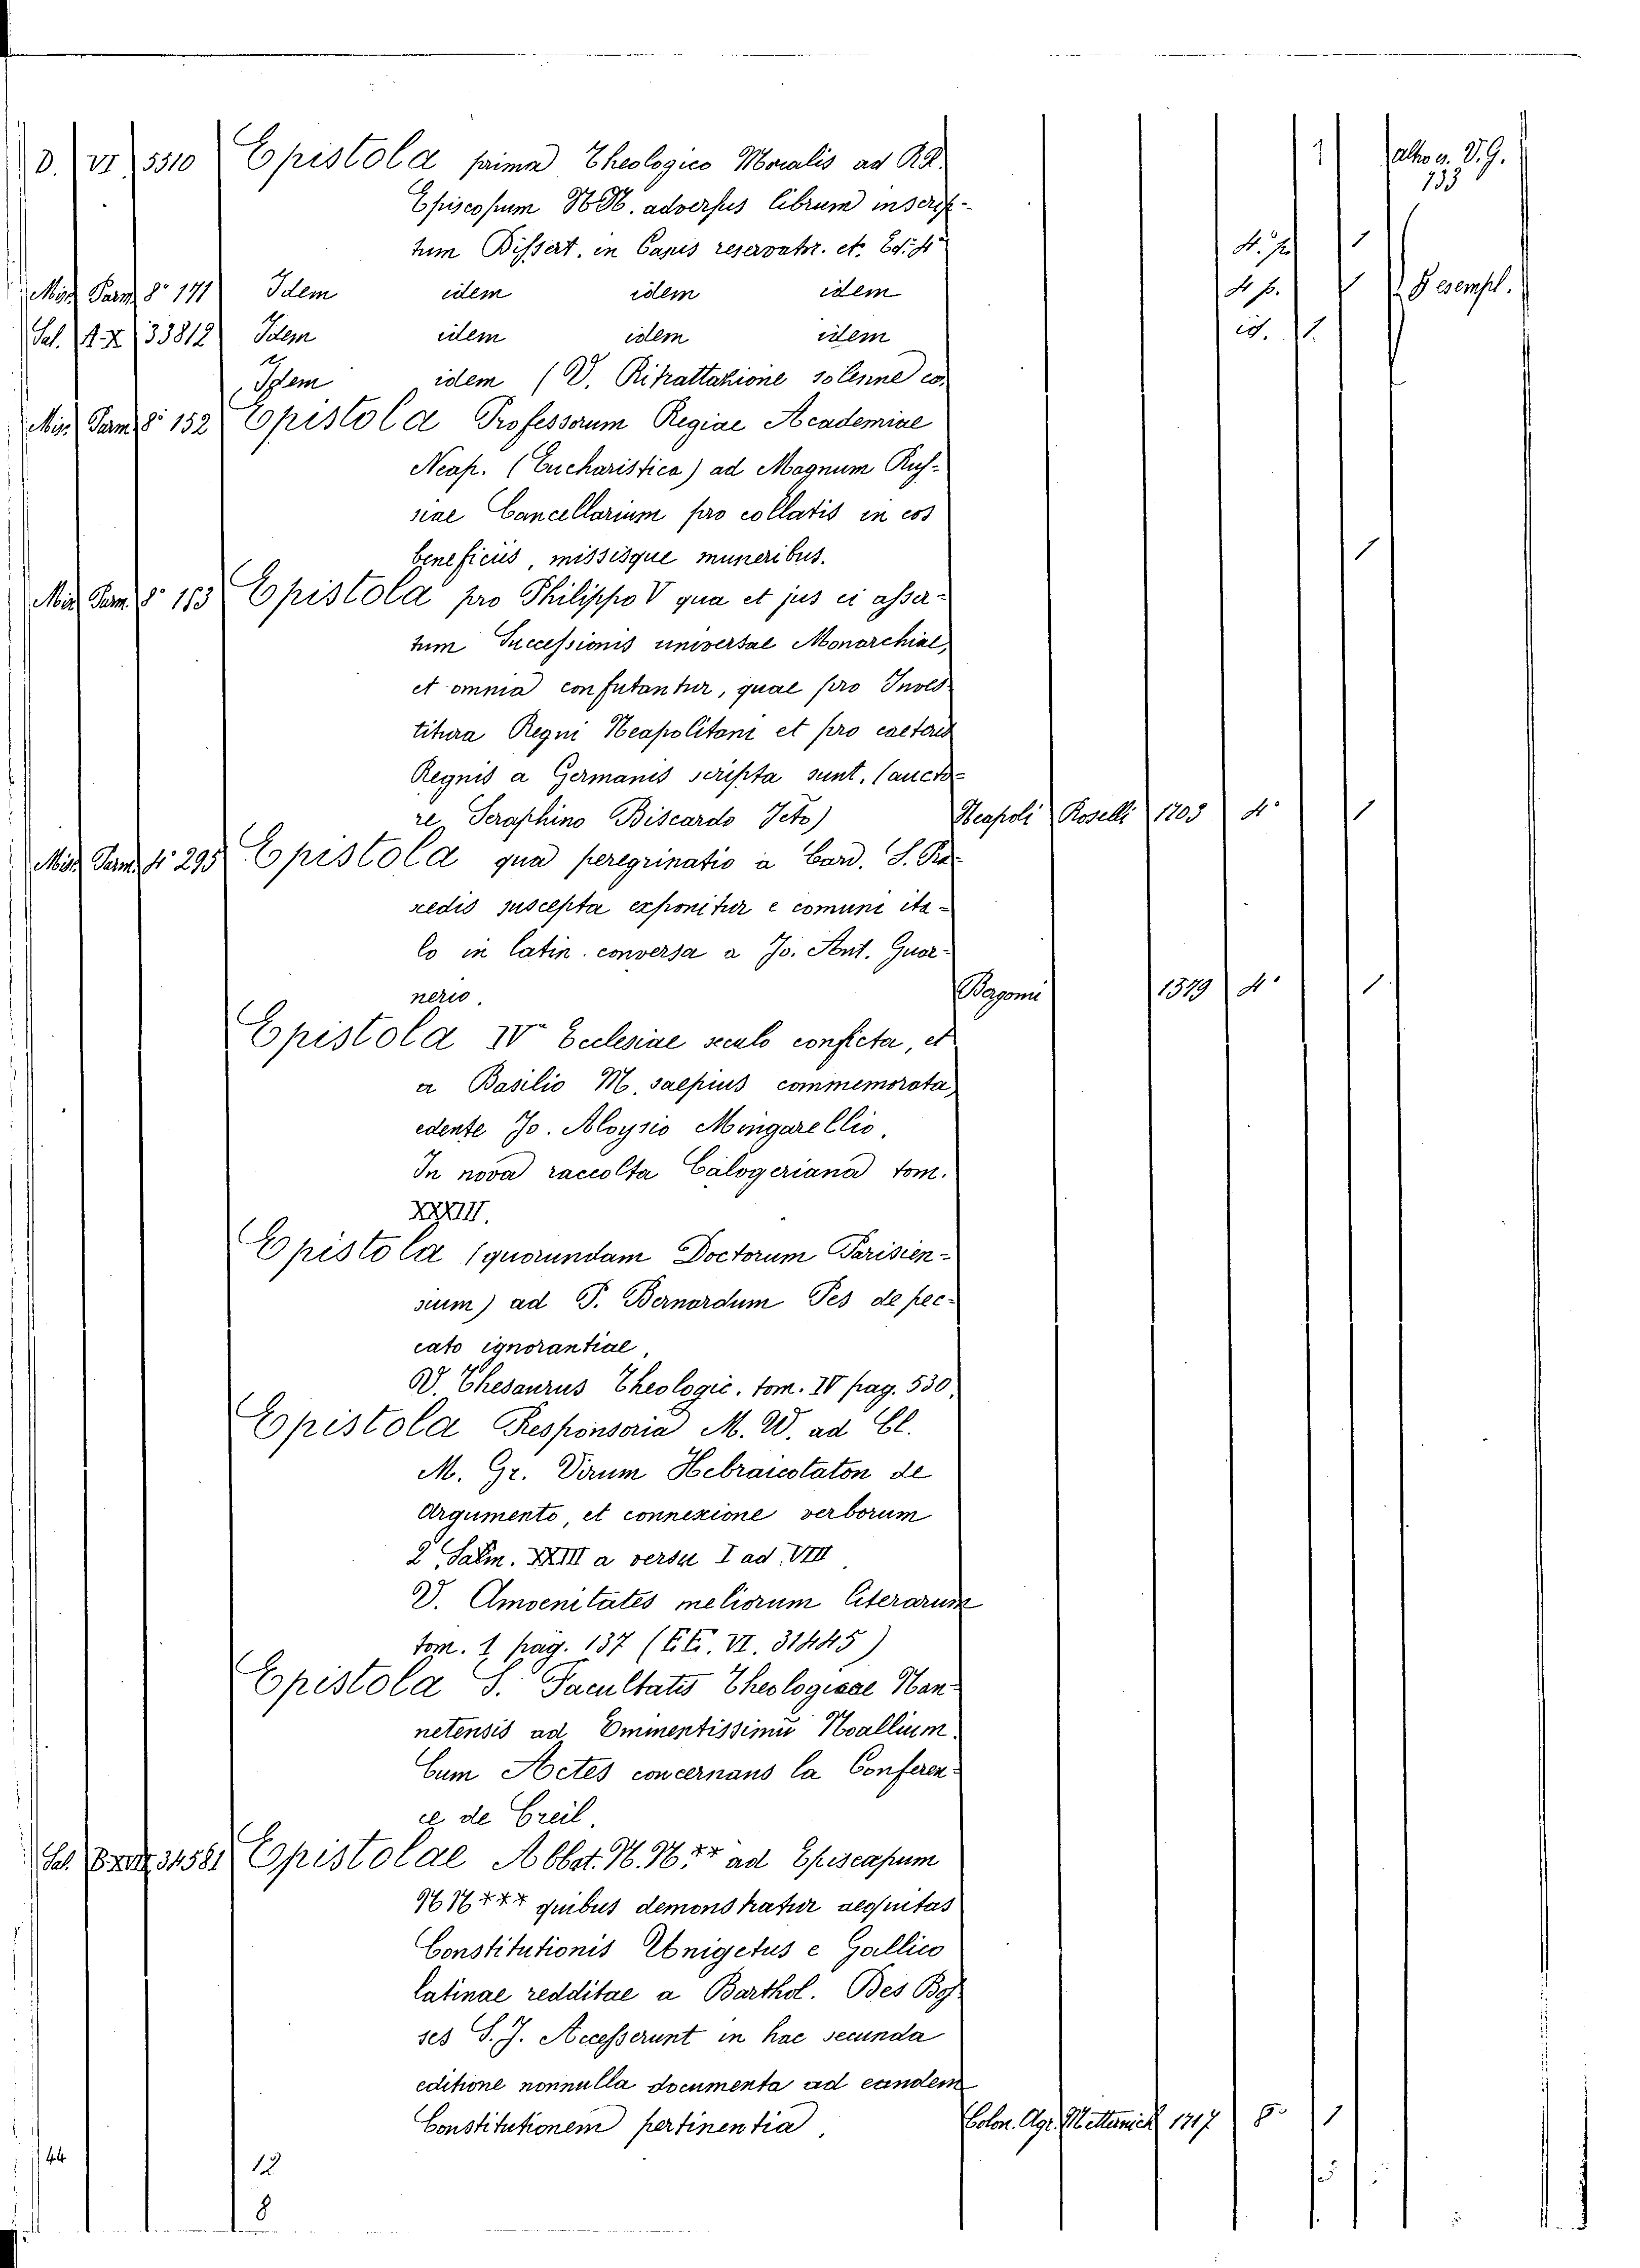 D. VI 5510 Epistola prima Theologico Moralis ad RR. 1 altro es. V. G. 133
Episcopum NN. adversus librum inscrip-
tum Dissert. in Casus reservatr. et. Ed. 4ª 4. p. 1
Misc. Parm. 8º 171 Idem idem idem idem 4 p. 1 esempl.
Sal. A. X 33812 Idem idem idem idem id. 1
Idem idem (V. Ritrattazione solenne ec.
Misc. Parm. 8º 152 Epistola Professorum Regiae Academiae
Neap. (Eucharistica) ad Magnum Rus-
siae Cancellarium pro collatis in eos
beneficiis, missisque muneribus. 1
Misc. Parm. 8º 113 Epistola pro Philippo V qua et jus ei asser-
tum Successionis universae Monarchiae,
et omnia confutantur, quae pro Inves-
titura Regni Neapolitani et pro caeteris
Regnis a Germanis scripta sunt. (aucto-
re Seraphino Biscardo Jcto) Neapoli Roselli 1703 4º 1
Misc. Parm. 4º 295 Epistola qua peregrinatio a Card. S. Pra-
xedis suscepta exponitur e comuni ita-
lo in latin. conversa a Jo. Ant. Guar-
nerio. Bergomi 1579 4º 1
Epistola IVº Ecclesiae seculo conficta, et
a Basilio M. saepius commemorata,
edente Jo. Aloysio Mingarellio.
In nova raccolta Calogeriana tom.
XXXIII.
Epistola (quorundam Doctorum Parisien-
sium) ad P. Bernardum Pes de pec-
cato ignorantiae,
V. Thesaurus Theologic. tom. IV pag. 530.
Epistola Responsoria M. W. ad Cl.
M. Gr. Virum Hebraicotaton de
Argumento, et connexione verborum
2 Salm. XXIII a versu I ad VII
V. Amoenitates meliorum literarum
tom. 1 pag. 137 (EE. VI. 31445)
Epistola S. Facultatis Theologicae Nan-
netensis ad Eminentissimū Noallium.
Cum Actes concernans la Conferen-
ce de Creil.
Sal. 34581 Epistolae Abbat. N. N.** ad Episcapum
NN*** quibus demonstratur aequitas
Constitutionis Unigetus e Gallico
latinae redditae a Barthol. Des Bos-
ses S. J. Accesserunt in hac secunda
editione nonnulla documenta ad eandem
Constitutionem pertinentia. Colon. Agr. Metternich 1717 8º 1
44 12 5
8